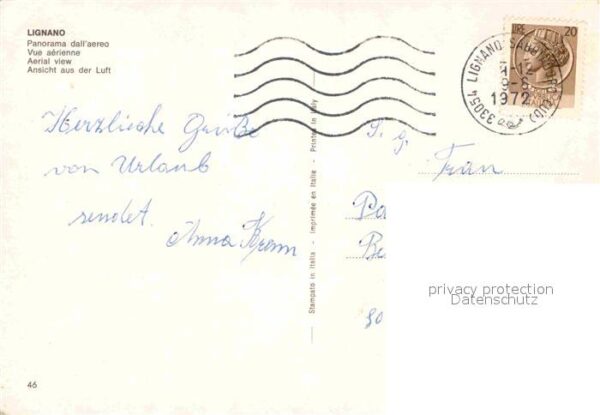 LIGNANO
Panorama dall'aereo
Vue aérienne
Aerial view
Ansicht aus der Luft
LIRE 20
33054 LIGNANO SABBIADORO (UD)
1972
Herzliche Grüße
von Urlaub
sendet
Anna
Stampato in Italia - Imprimée en Italie - Printed in Italy
S. g.
Frau
privacy protection
Datenschutz
46